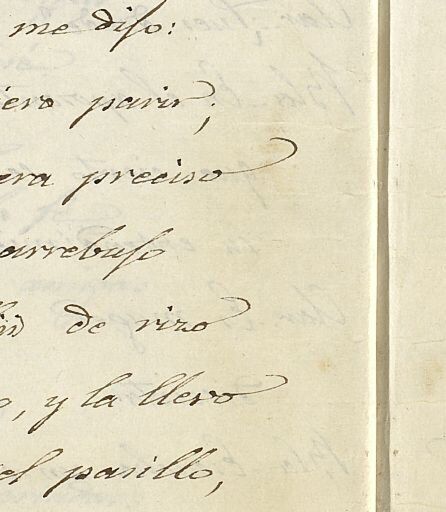 me dijo:
iero parir;
era preciso
arrebujo
de rizo
, y la llevo
el pasillo,